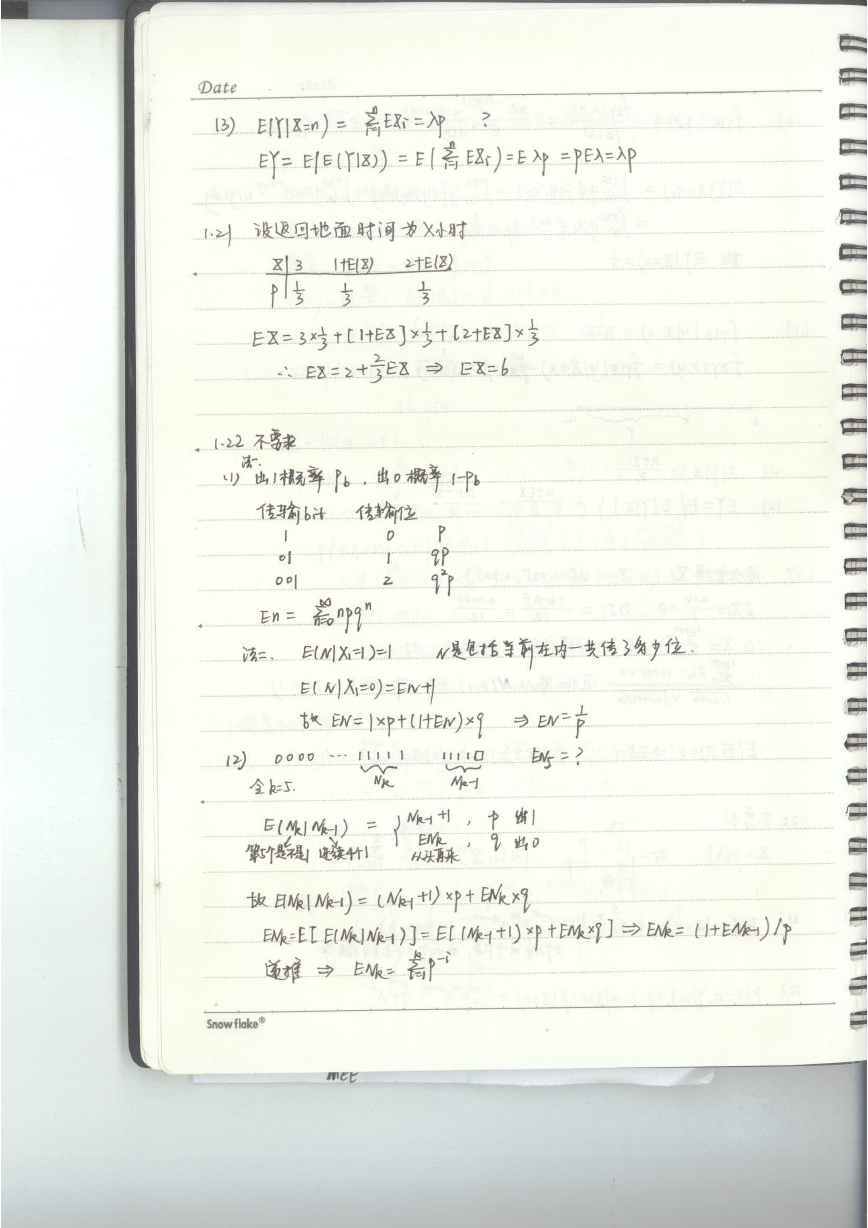 Date
(3) E(Y|X=n) = Σ_{i=1}^{n} EXi = λp ?
EY = E[E(Y|X)] = E(Σ_{i=1}^{n} EXi) = Eλp = pEλ = λp
1.21 设返回地面时间为X小时
X | 3 1+E(X) 2+E(X)
P | 1/3 1/3 1/3
EX = 3×1/3 + [1+EX]×1/3 + [2+EX]×1/3
∴ EX = 2+2/3EX ⇒ EX=6
1.22 不要求
法一.
(1) 出1概率 Pb . 出0概率 1-Pb
传输bit 传输位
1 0 P
01 1 qP
001 2 q²p
En = Σ_{n=0}^{∞} npqⁿ
法二. E(N|X₁=1)=1 N是包括当前在内一共传了多少位.
E(N|X₁=0)=EN+1
故 EN=1×p+(1+EN)×q ⇒ EN=1/p
(2) 0000 ⋯ 11111 11110 EN₅=?
全k=5. Nk Nk-1
E(Nk|Nk-1) = { Nk-1+1 , p 出1
ENk , q 出0
第5个是不是1 连续4个1 从头再来
故 E(Nk|Nk-1) = (Nk-1+1)×p+ENk×q
ENk=E[E(Nk|Nk-1)]=E[(Nk-1+1)×p+ENk×q] ⇒ ENk=(1+ENk-1)/p
递推 ⇒ ENk= Σ_{i=1}^{k} p⁻ⁱ
Snowflake®